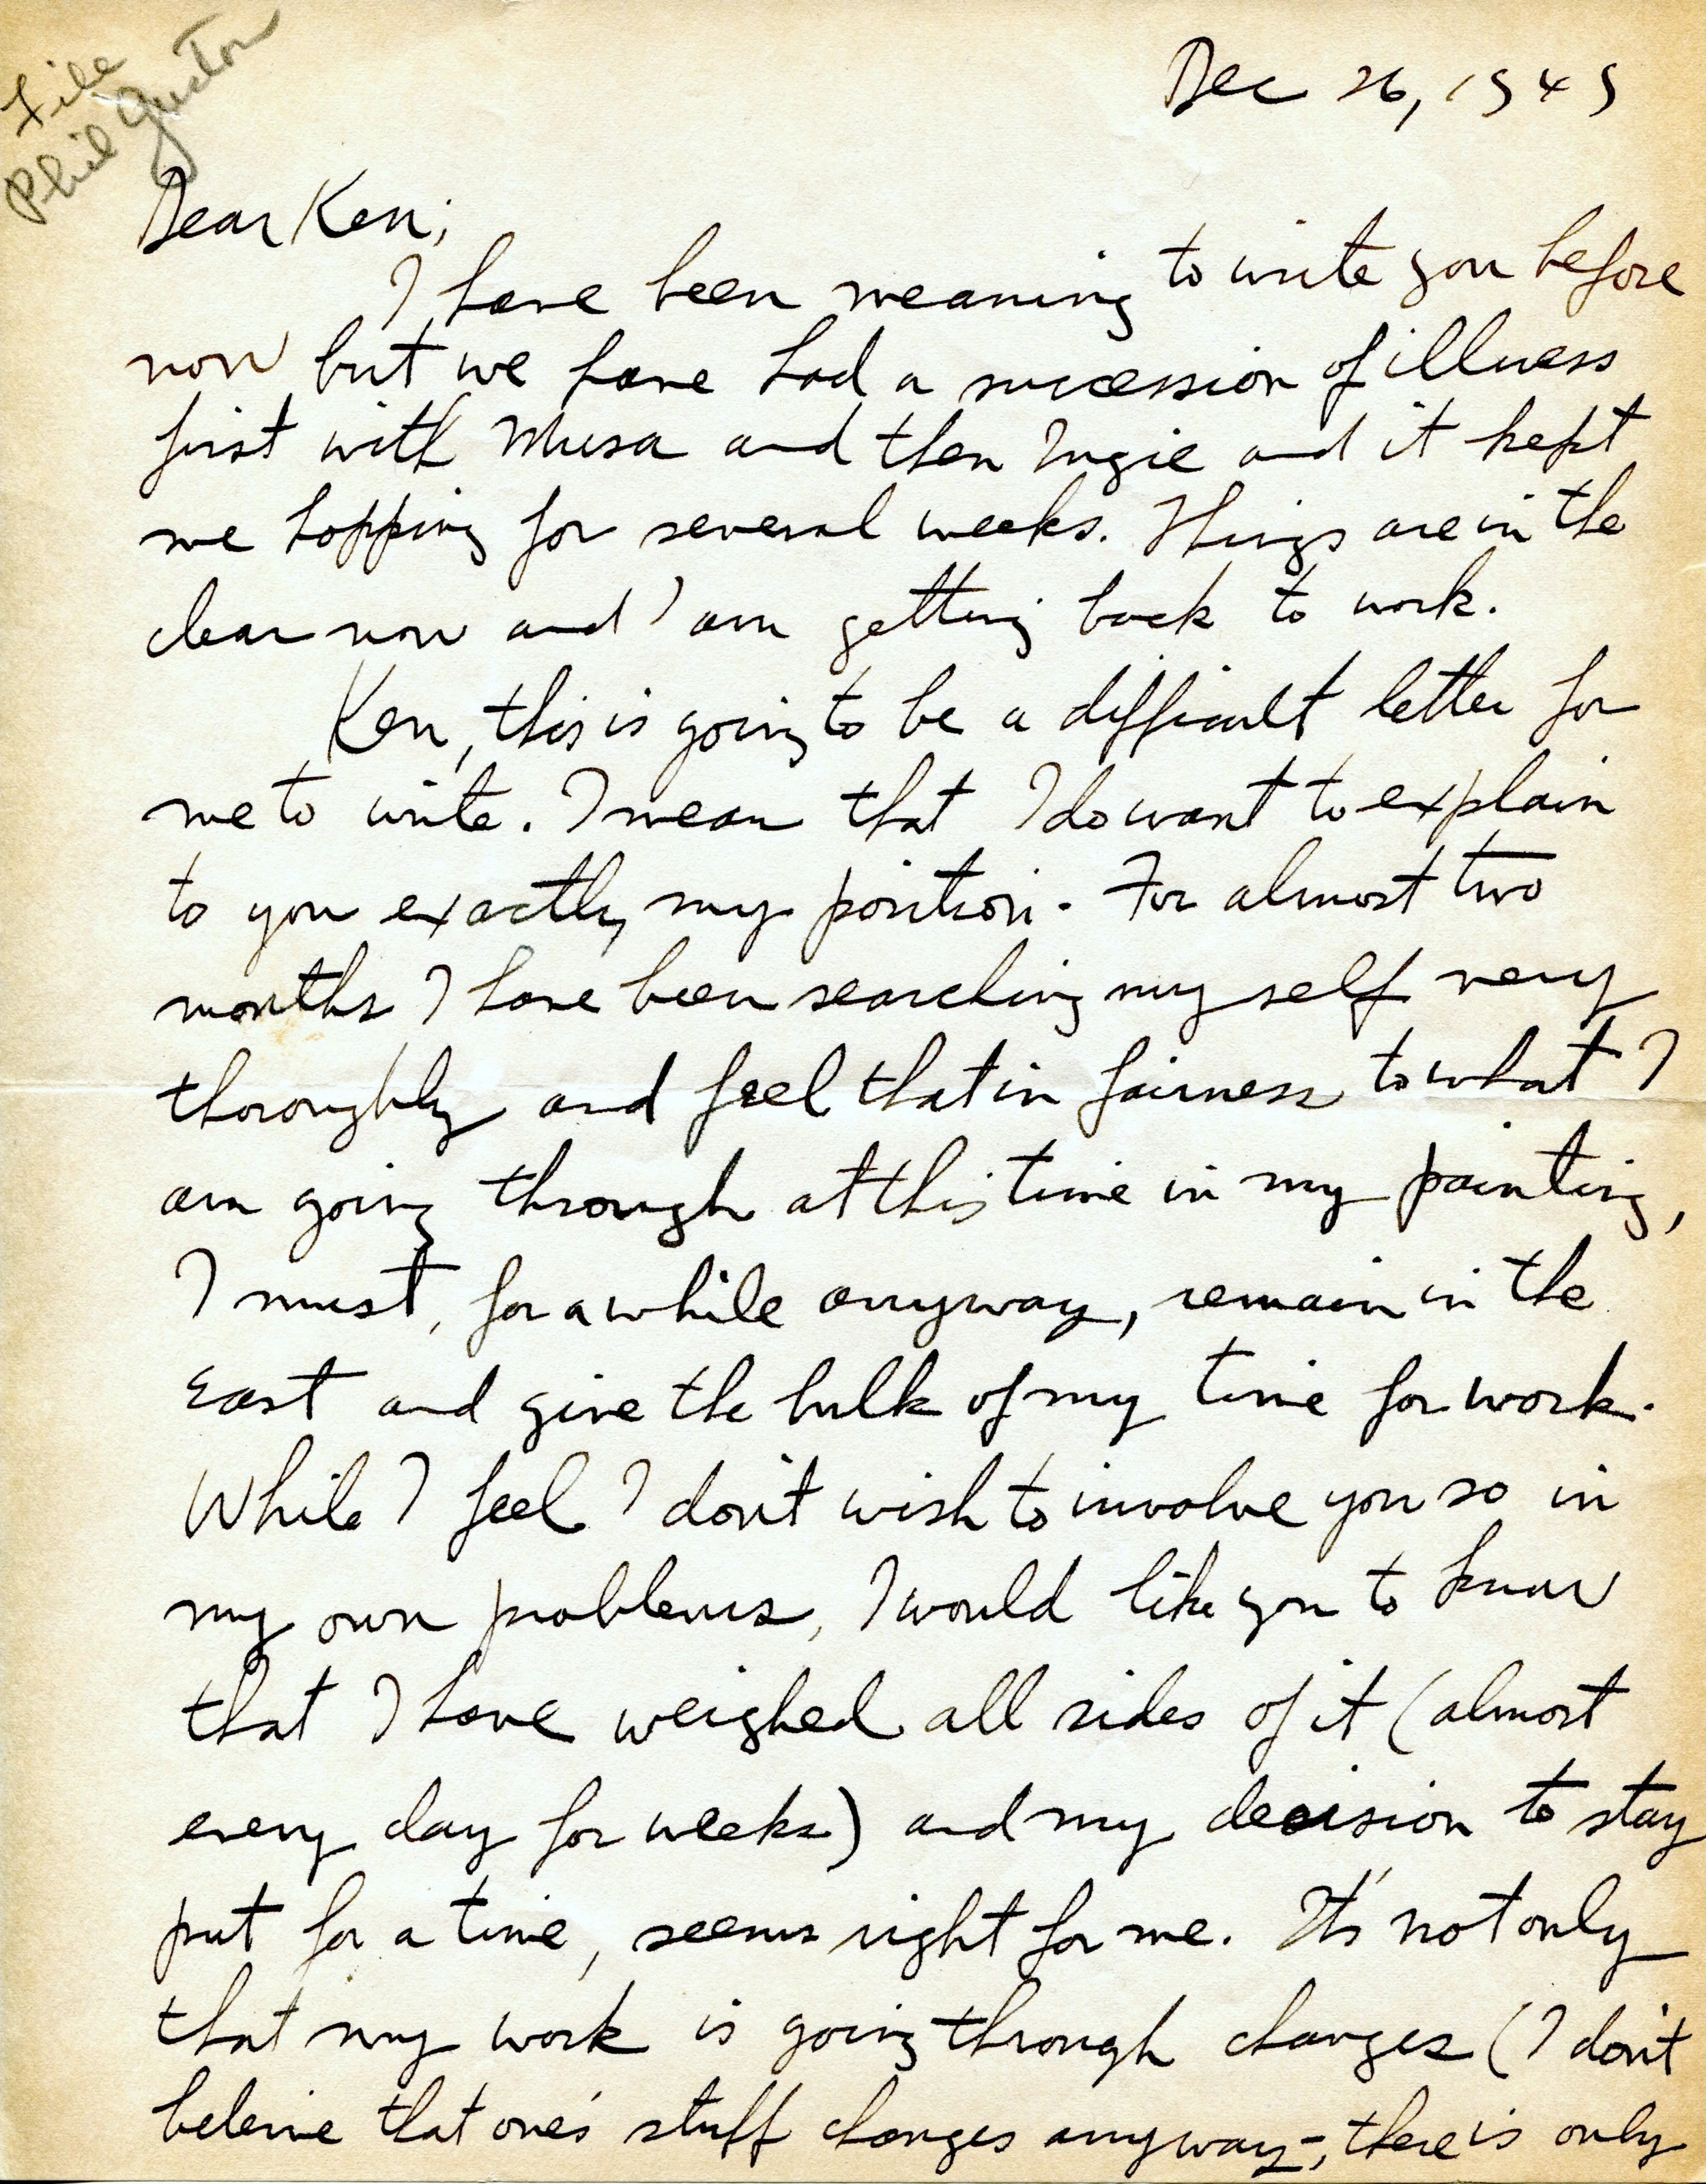 File
Phil Guston
Dec 26, 1949
Dear Ken;
I have been meaning to write you before
now but we have had a sucession of illness
first with Musa and then Ingie and it kept
me hopping for several weeks. Things are in the
clear now and I am getting back to work.
Ken, this is going to be a difficult letter for
me to write. I mean that I do want to explain
to you exactly my position. For almost two
months I have been searching my self very
thoroughly and feel that in fairness to what I
am going through at this time in my painting,
I must, for a while anyway, remain in the
East and give the bulk of my time for work.
While I feel I don't wish to involve you so in
my own problems, I would like you to know
that I have weighed all sides of it (almost
every day for weeks) and my decision to stay
put for a time, seems right for me. It's not only
that my work is going through changes (I don't
beleive that one's stuff changes anyway-, there is only